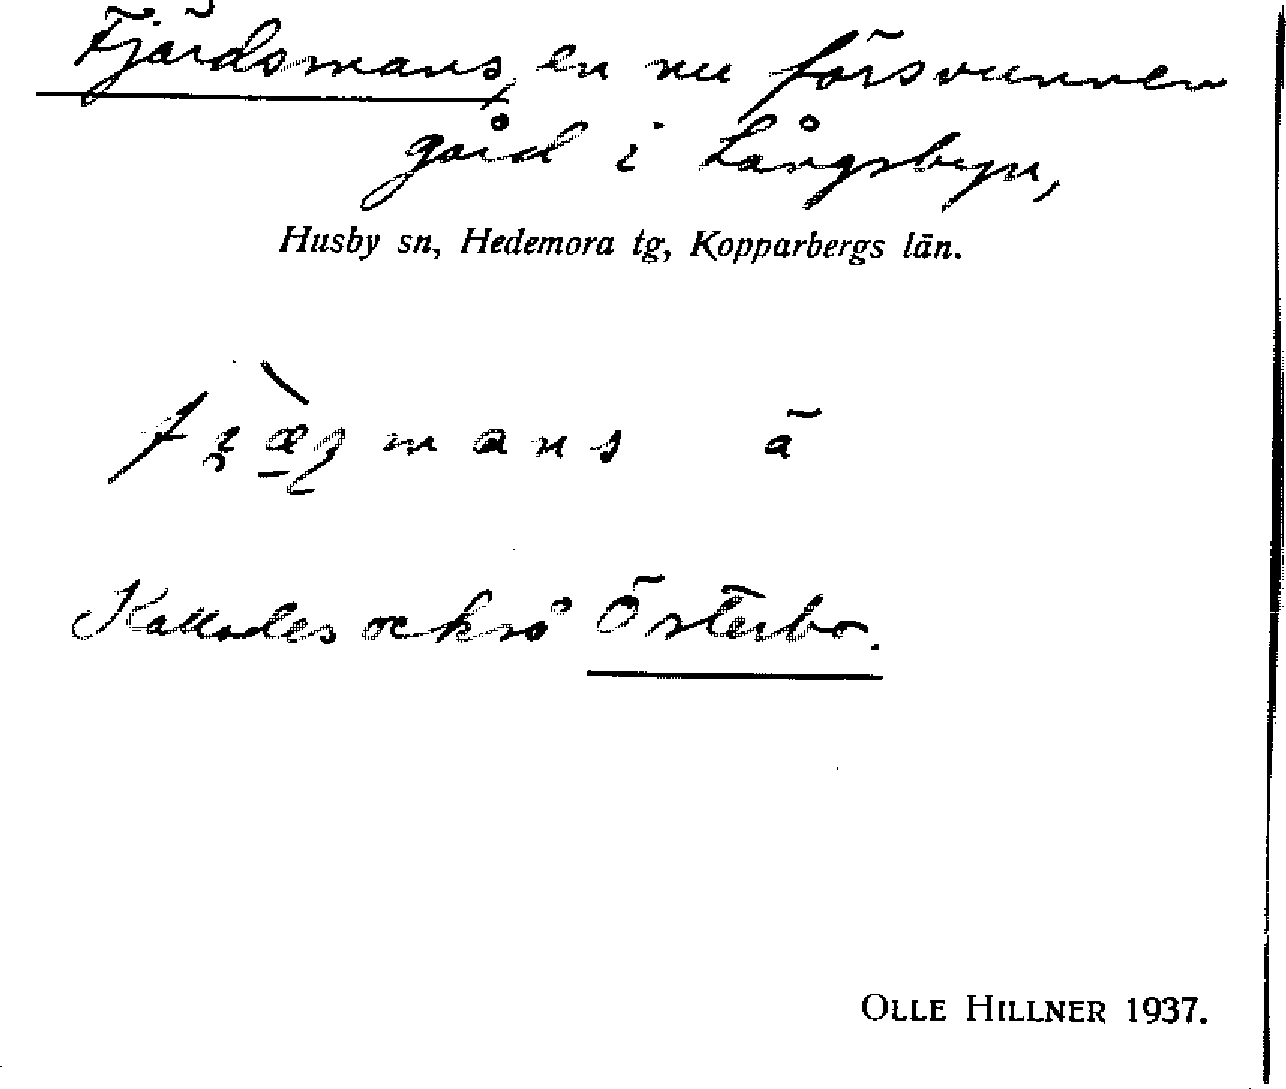 Fjärdsmans, en nu försvunnen
gård i Långsbyn,
Husby sn, Hedemora tg, Kopparbergs län.
mans ä
Kallades också Österbo.
OLLE HILLNER 1937.